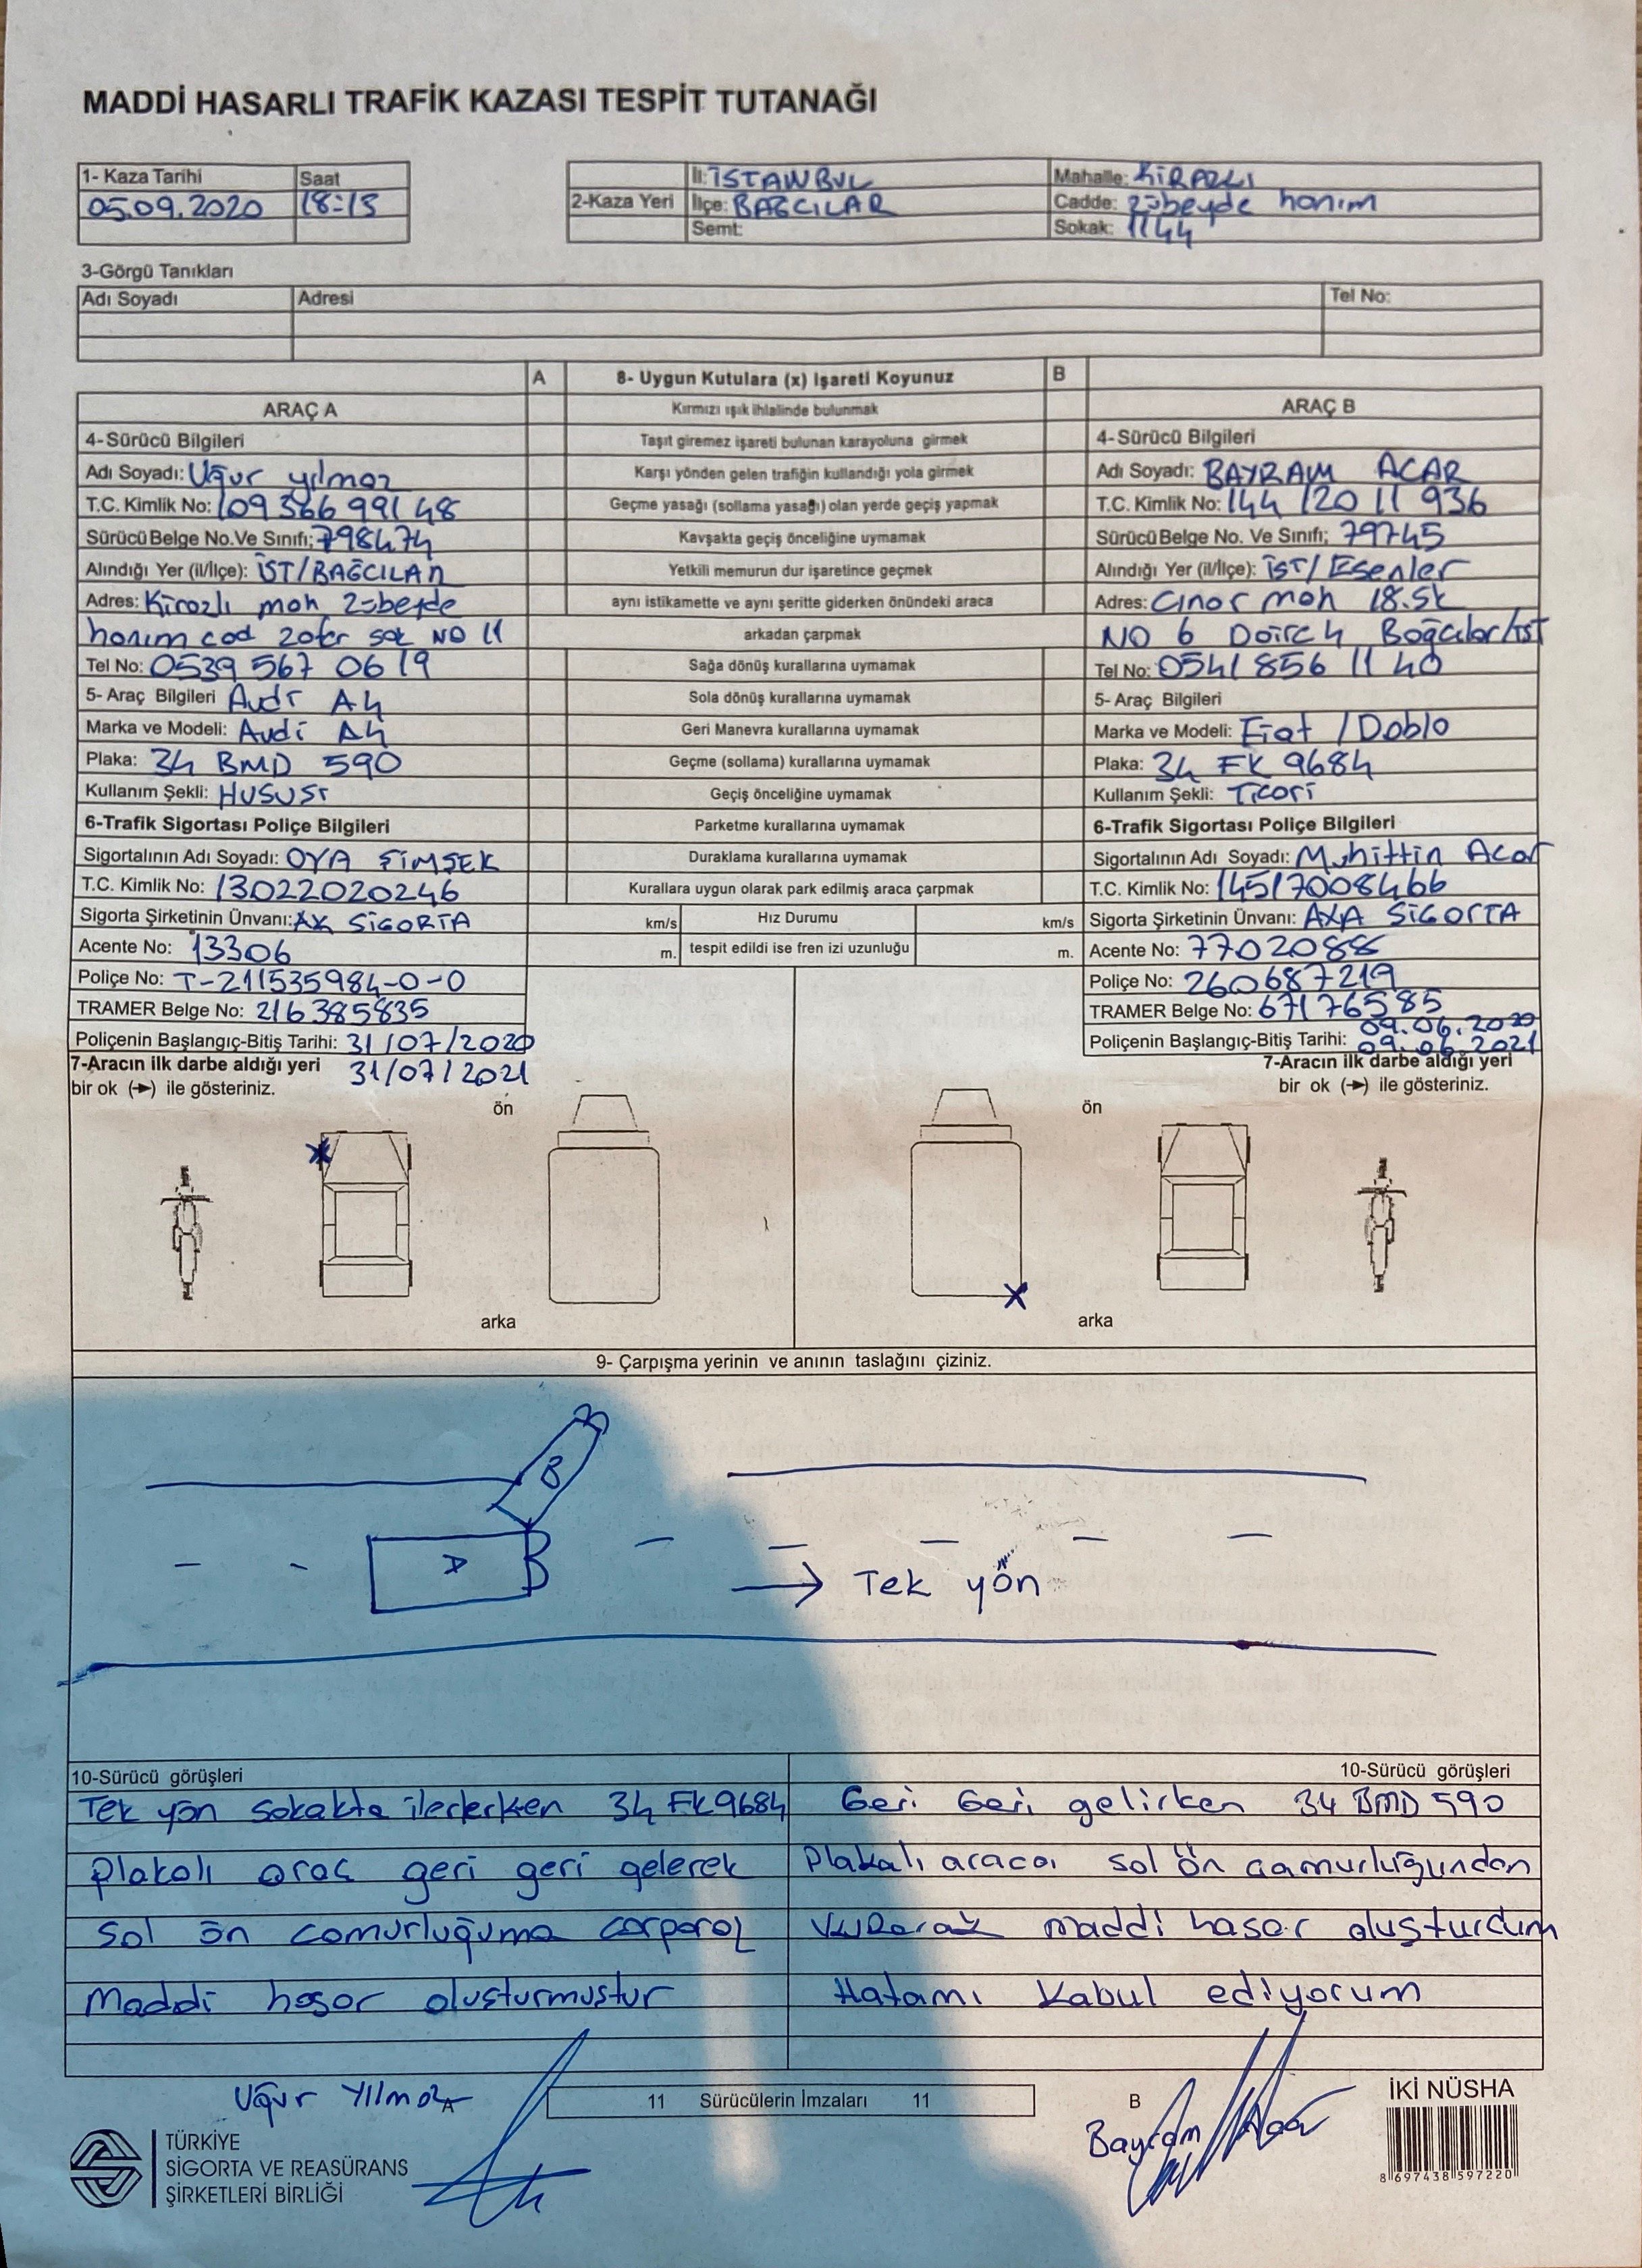 MADDİ HASARLI TRAFİK KAZASI TESPİT TUTANAĞI
1- Kaza Tarihi Saat
05.09.2020 18:15
2-Kaza Yeri
İl: İSTANBUL
İlçe: BAĞCILAR
Semt:
Mahalle: KİRAZLI
Cadde: Zübeyde hanım
Sokak: 1144
3-Görgü Tanıkları
Adı Soyadı Adresi Tel No:
A 8- Uygun Kutulara (x) İşareti Koyunuz B
ARAÇ A
4-Sürücü Bilgileri
Adı Soyadı: Uğur yılmaz
T.C. Kimlik No: 10936699148
Sürücü Belge No.Ve Sınıfı; 798474
Alındığı Yer (il/İlçe): İST/BAĞCILAR
Adres: Kirazlı mah Zübeyde
hanım cad zafer sok NO 11
Tel No: 0539 567 06 19
5- Araç Bilgileri Audi A4
Marka ve Modeli: Audi A4
Plaka: 34 BMD 590
Kullanım Şekli: HUSUSİ
6-Trafik Sigortası Poliçe Bilgileri
Sigortalının Adı Soyadı: OYA ŞİMŞEK
T.C. Kimlik No: 13022020246
Sigorta Şirketinin Ünvanı: AK SİGORTA
Acente No: 13306
Poliçe No: T-211535984-0-0
TRAMER Belge No: 216385835
Poliçenin Başlangıç-Bitiş Tarihi: 31/07/2020
31/07/2021
7-Aracın ilk darbe aldığı yeri
bir ok (➔) ile gösteriniz.
Kırmızı ışık ihlalinde bulunmak
Taşıt giremez işareti bulunan karayoluna girmek
Karşı yönden gelen trafiğin kullandığı yola girmek
Geçme yasağı (sollama yasağı) olan yerde geçiş yapmak
Kavşakta geçiş önceliğine uymamak
Yetkili memurun dur işaretince geçmek
aynı istikamette ve aynı şeritte giderken önündeki araca
arkadan çarpmak
Sağa dönüş kurallarına uymamak
Sola dönüş kurallarına uymamak
Geri Manevra kurallarına uymamak
Geçme (sollama) kurallarına uymamak
Geçiş önceliğine uymamak
Parketme kurallarına uymamak
Duraklama kurallarına uymamak
Kurallara uygun olarak park edilmiş araca çarpmak
km/s Hız Durumu km/s
m. tespit edildi ise fren izi uzunluğu m.
ARAÇ B
4-Sürücü Bilgileri
Adı Soyadı: BAYRAM ACAR
T.C. Kimlik No: 144 120 11 936
Sürücü Belge No. Ve Sınıfı; 79745
Alındığı Yer (il/İlçe): İST/Esenler
Adres: Çınar mah 18.Sk
NO 6 Daire 4 Bağcılar/İST
Tel No: 0541 856 11 40
5- Araç Bilgileri
Marka ve Modeli: Fiat / Doblo
Plaka: 34 FK 9684
Kullanım Şekli: Ticari
6-Trafik Sigortası Poliçe Bilgileri
Sigortalının Adı Soyadı: Muhittin Acar
T.C. Kimlik No: 14517008466
Sigorta Şirketinin Ünvanı: AXA SİGORTA
Acente No: 7702088
Poliçe No: 260687219
TRAMER Belge No: 67176585
09.06.2020
Poliçenin Başlangıç-Bitiş Tarihi: 09.06.2021
7-Aracın ilk darbe aldığı yeri
bir ok (➔) ile gösteriniz.
ön ön
arka arka
9- Çarpışma yerinin ve anının taslağını çiziniz.
B
A
→ Tek yön
10-Sürücü görüşleri
Tek yön sokakta ilerlerken 34 FK9684
Plakalı araç geri geri gelerek
sol ön çamurluğuma çarparak
Maddi hasar oluşturmuştur
10-Sürücü görüşleri
Geri Geri gelirken 34 BMD 590
Plakalı aracı sol ön çamurluğundan
vurarak maddi hasar oluşturdum
Hatamı Kabul ediyorum
Uğur Yılmaz
A
11 Sürücülerin İmzaları 11
B
Bayram Acar
İKİ NÜSHA
8 697438 597220
TÜRKİYE
SİGORTA VE REASÜRANS
ŞİRKETLERİ BİRLİĞİ